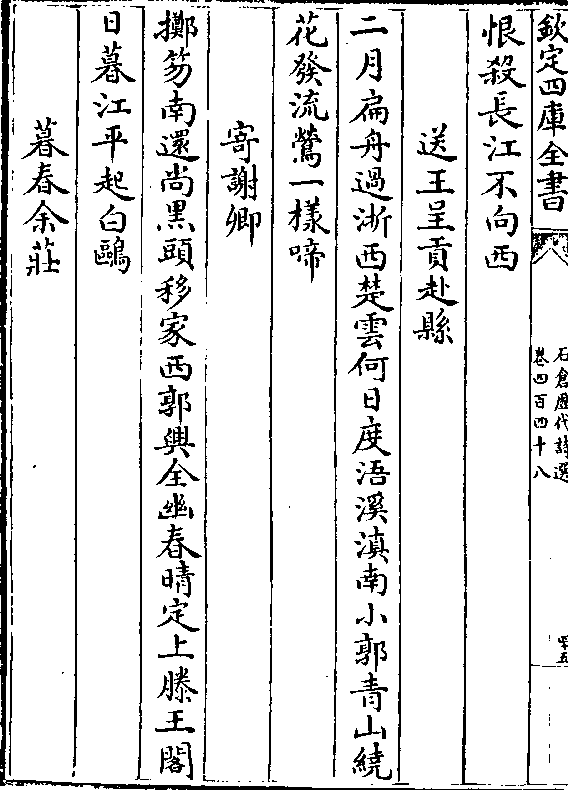 欽定四庫全書
石倉歷代詩選
卷四百四十八
四五
恨殺長江不向西
送王呈貢赴縣
二月扁舟過浙西楚雲何日度浯溪滇南小郭青山繞
花發流鶯一樣啼
寄謝卿
擲笏南還尚黑頭移家西郭興全幽春晴定上滕王閣
日暮江平起白鷗
暮春余莊